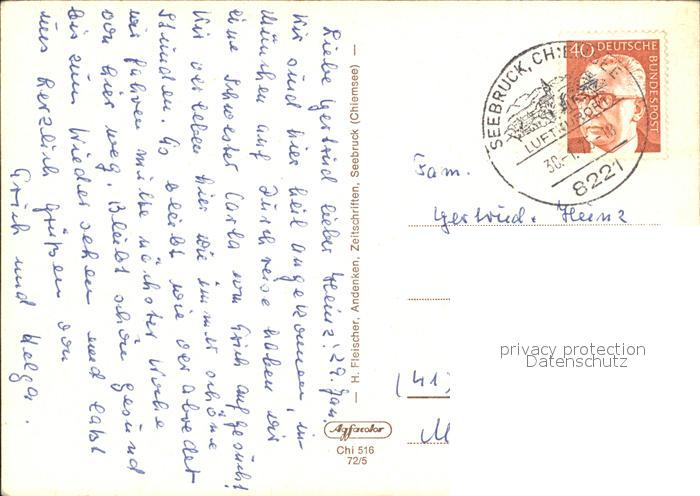 Liebe Gertrud lieber Heinz! 29. Jan.
Wir sind hier heil angekommen, in
München auf Durchreise haben wir
eine Schwester Carla von Erich aufgesucht
Wir verleben hier wie immer schöne
Stunden. So bleibt wie verabredet
wir fahren mitte nächster Woche
von hier weg. Bleibt schön gesund
bis zum Wiedersehen und laßt
uns herzlich grüßen von
Erich und Helga.
— H. Fleischer, Andenken, Zeitschriften, Seebruck (Chiemsee) —
Agfacolor
Chi 516
72/5
40 DEUTSCHE
BUNDESPOST
SEEBRUCK, CHIEMSEE
LUFTKURORT
30.-1.
8221
Fam.
Gertrud. Heinz
(41)
M
privacy protection
Datenschutz